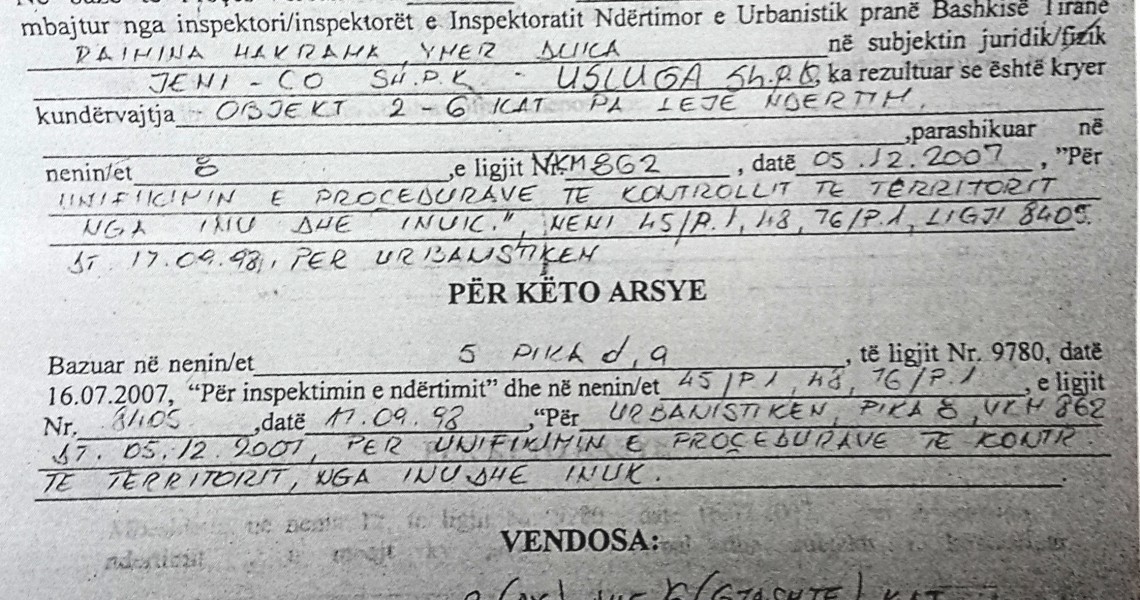 mbajtur nga inspektori/inspektorët e Inspektoratit Ndërtimor e Urbanistik pranë Bashkisë Tiranë
YMER në subjektin juridik/fizik
JENI - CO SH.P.K - USLUGA Sh.P.K, ka rezultuar se është kryer
kundërvajtja OBJEKT 2 - 6 KAT PA LEJE NDERTIM,
,parashikuar në
nenin/et 8 ,e ligjit NKM 862 , datë 05.12.2007 , "Për
UNIFIKIMIN E PROCEDURAVE TE KONTROLLIT TE TERRITORIT
NGA INU DHE INUK.", NENI 45/P.1, 48, 76/P.1, LIGJI 8405.
DT. 17.09.98, PER URBANISTIKEN
PËR KËTO ARSYE
Bazuar në nenin/et 5 PIKA d, a , të ligjit Nr. 9780, datë
16.07.2007, “Për inspektimin e ndërtimit” dhe në nenin/et 45/P.1, 48, 76/P.1 , e ligjit
Nr. 8405 ,datë 17.09.98 ,“Për URBANISTIKEN, PIKA 8, VKM 862
DT. 05.12.2007, PER UNIFIKIMIN E PROÇEDURAVE TE KONTR.
TE TERRITORIT, NGA INU DHE INUK.
VENDOSA:
(GJASHTE) KAT